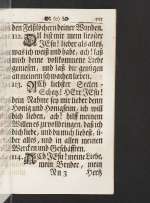 den Felslöchern deiner Wunden.
112. Du bist mir nun lieber
JEsu! lieber als alles,
was ich weiß und habe, ach! laß
mich deine vollkommene Liebe
geniessen, und laß dir genügen
an meinem schwachen lieben.
113. Ach liebster Seelen-
Schatz! HErr JEsu!
dein Nahme sey mir lieber denn
Honig und Honigseim, ich will
dich lieben, ach! hilf meinen
Willen es zu vollbringen, daß ich
dich liebe, und du mich liebest,
alles, und in allen meinen
Wercken und Geschäfften.
114. Ach JEsu! meine Liebe,
mein Bruder, mein
Nn 3 Hertz